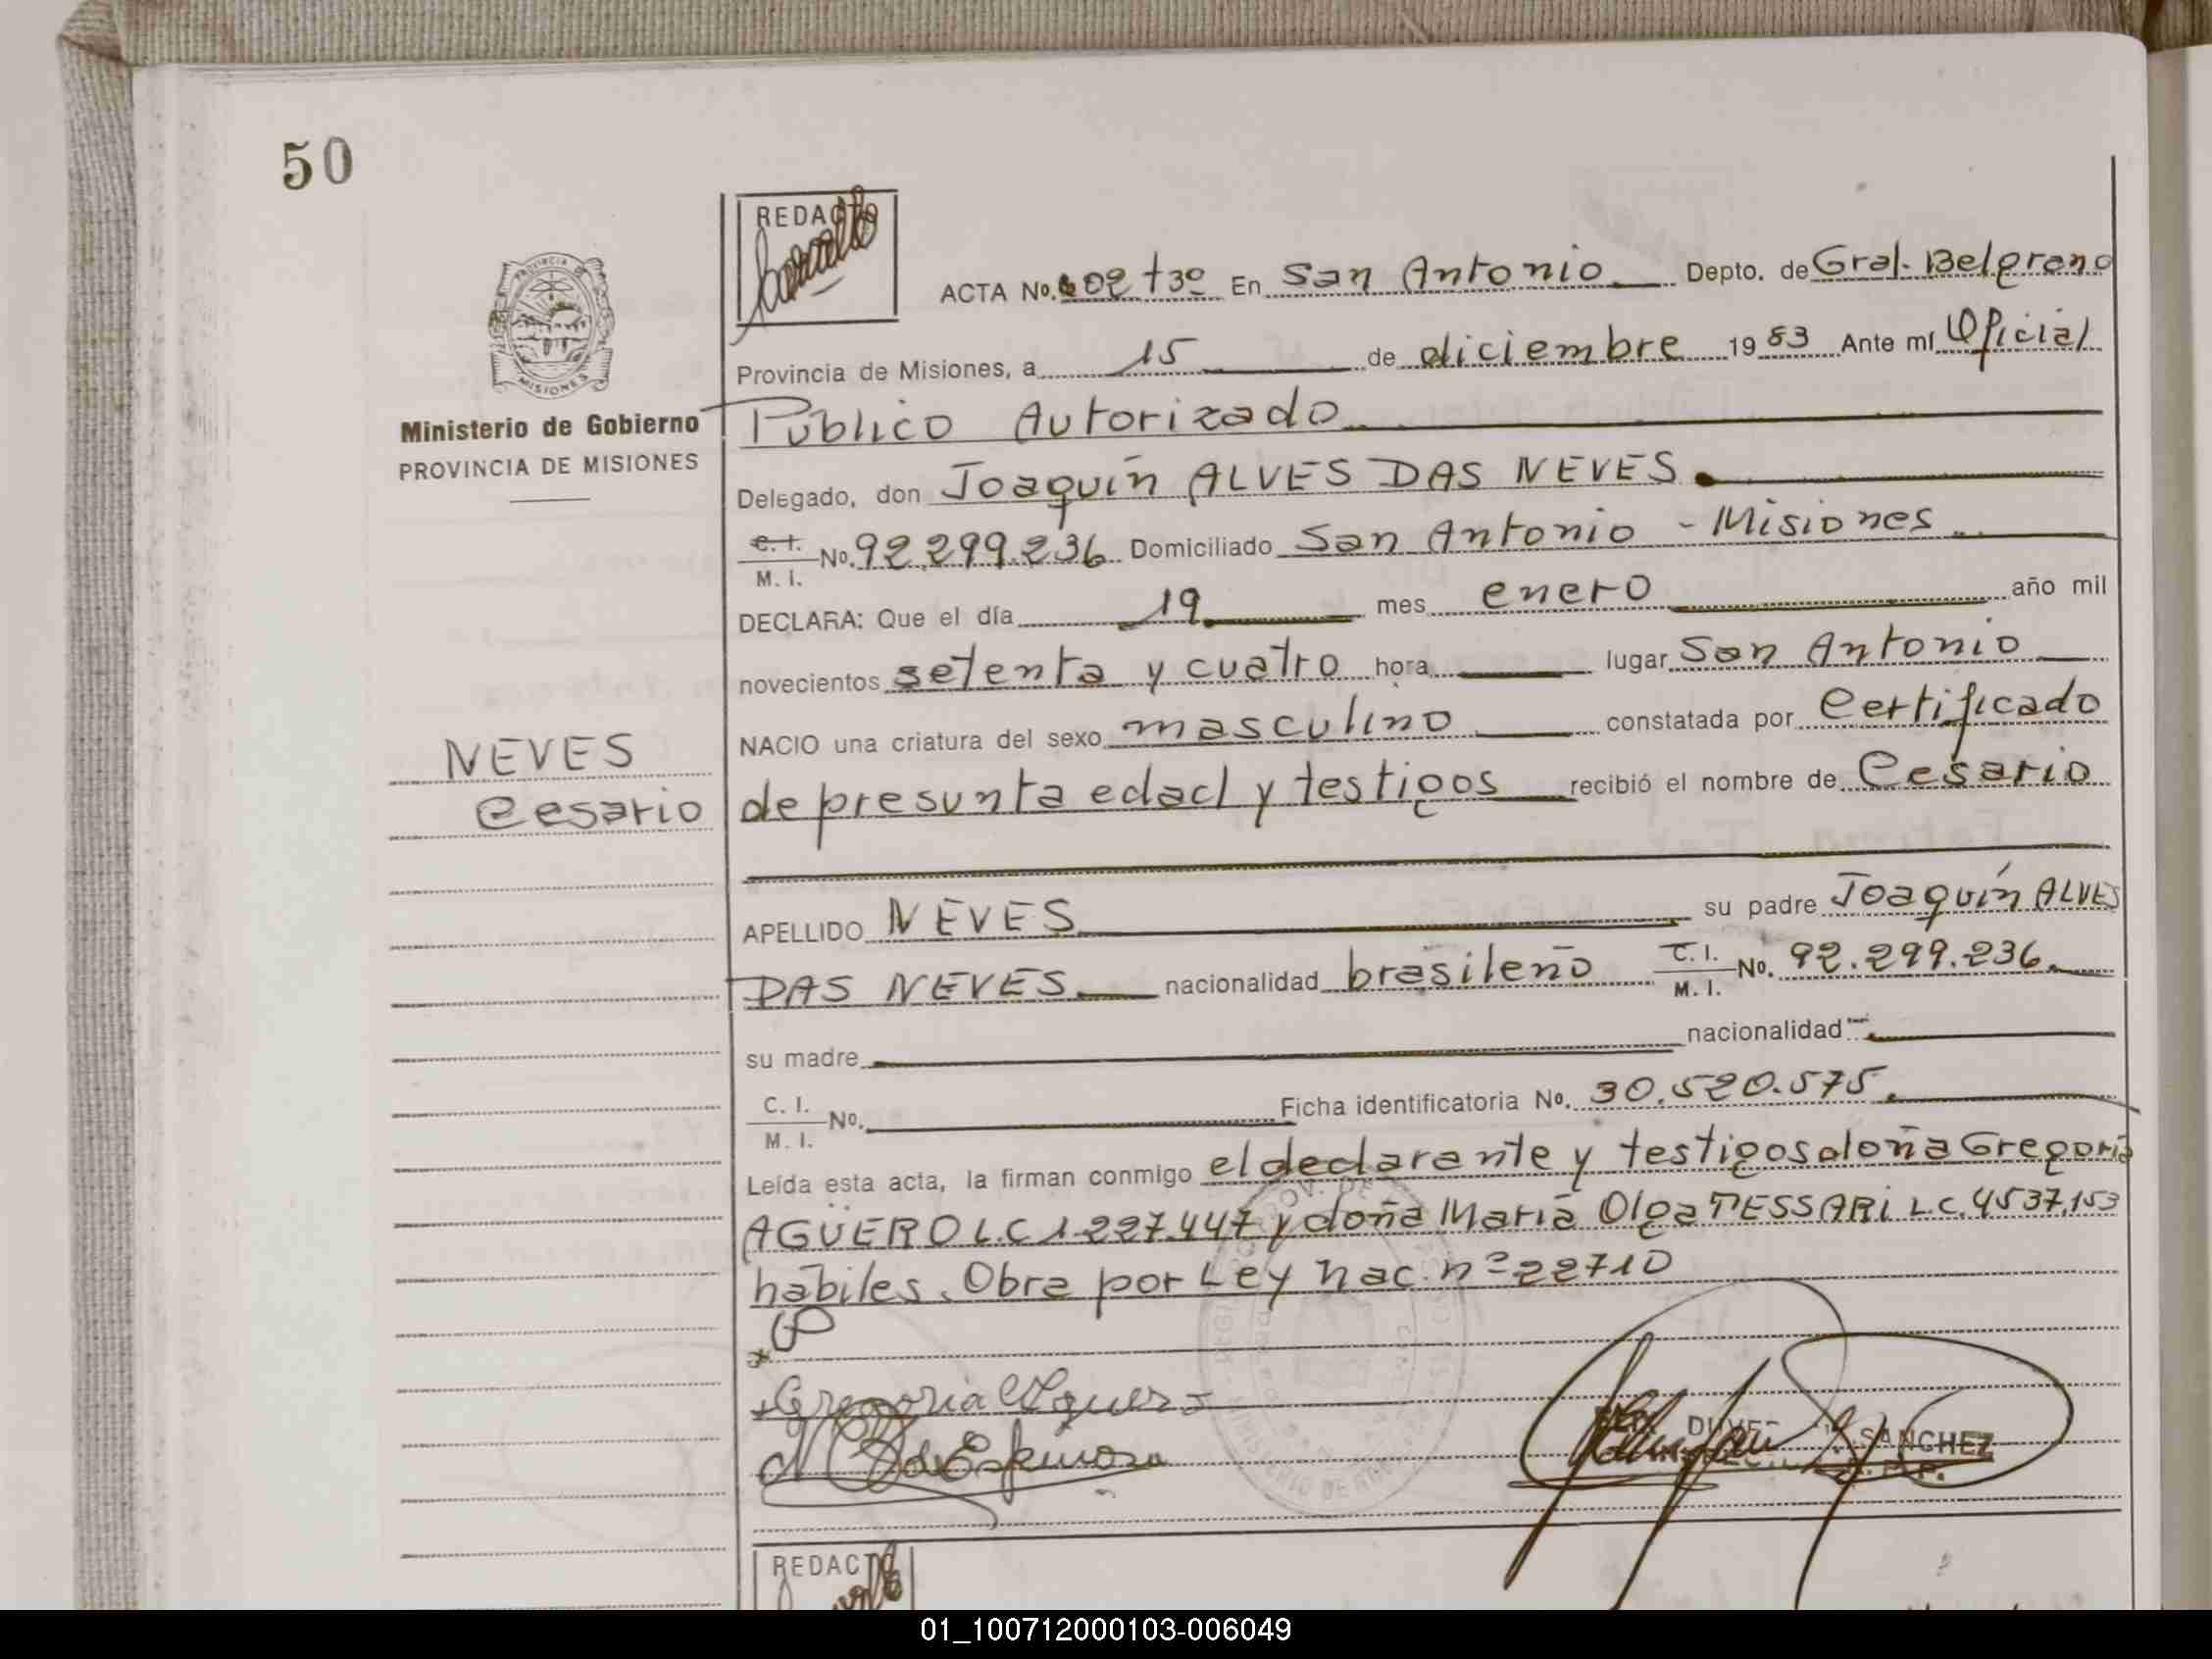 50
REDACTO
ACTA No. 602 tº 3º En San Antonio Depto. de Gral. Belgrano
Provincia de Misiones, a 15 de diciembre 1983 Ante mí Oficial
Ministerio de Gobierno
PROVINCIA DE MISIONES
Público Autorizado
Delegado, don Joaquín ALVES DAS NEVES
C. I. M. I. No. 92.299.236 Domiciliado San Antonio - Misiones
DECLARA: Que el día 19 mes enero año mil
novecientos setenta y cuatro hora lugar San Antonio
NACIO una criatura del sexo masculino constatada por Certificado
NEVES
Cesario
de presunta edad y testigos recibió el nombre de Cesario
APELLIDO NEVES su padre Joaquín ALVES
DAS NEVES nacionalidad brasileño C. I. M. I. No. 92.299.236
su madre nacionalidad
C. I. M. I. No. Ficha identificatoria No. 30.520.575
Leída esta acta, la firman conmigo el declarante y testigos doña Gregoria
AGÜERO L.C 1.227.447 y doña María Olga TESSARI L.C. 4537.153
hábiles. Obra por Ley nac. nº 22710
Gregoria Aguero
de Espinosa
SANCHEZ
REDACTO
01_100712000103-006049